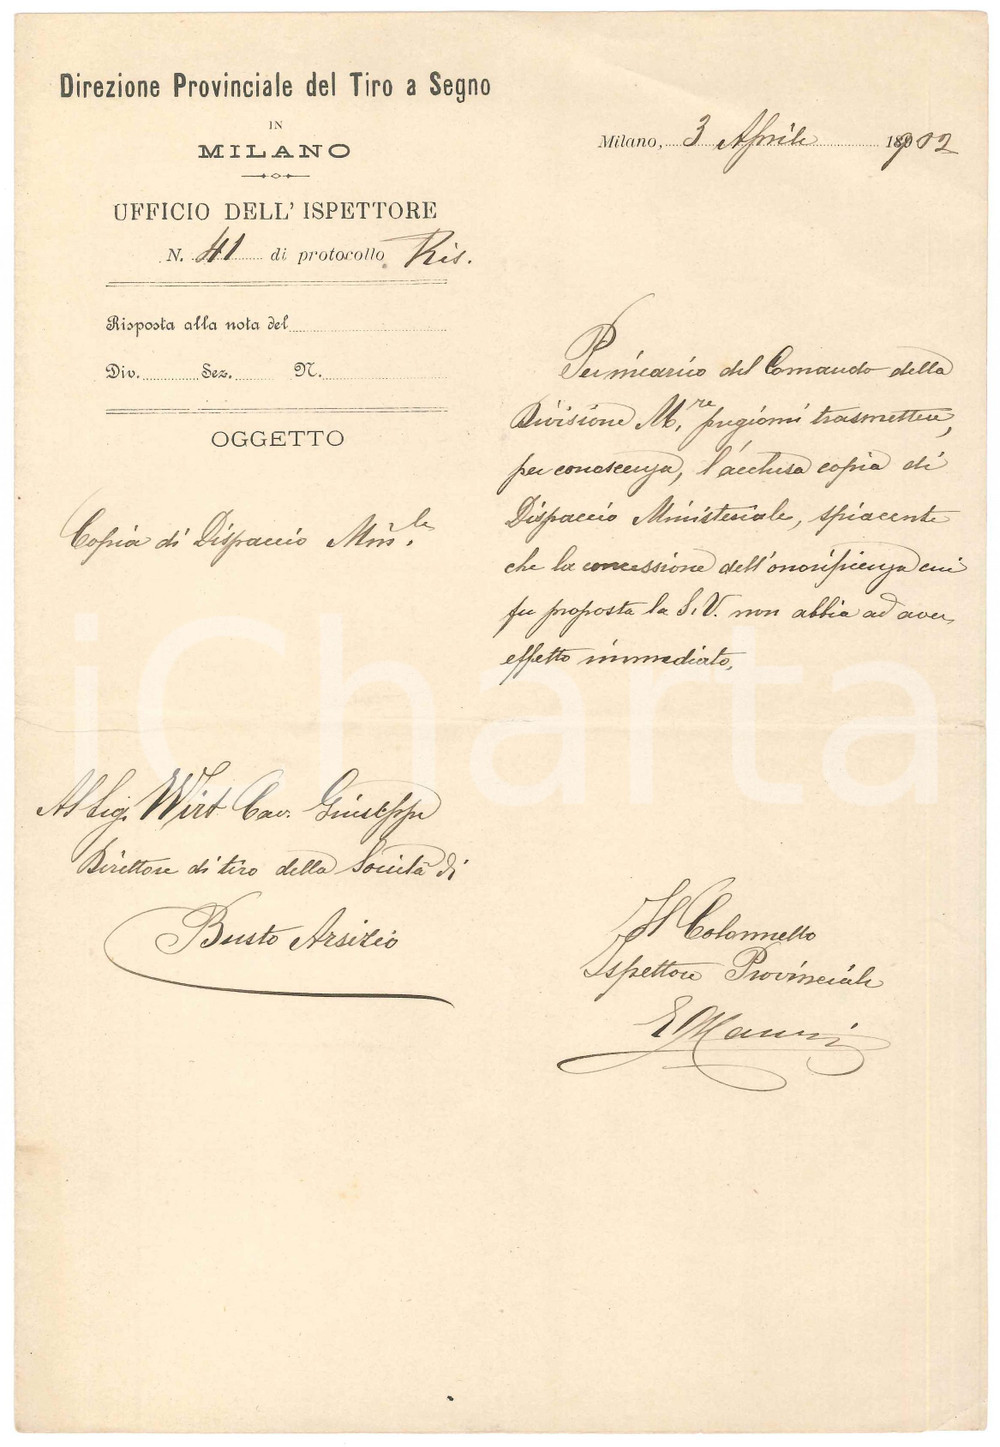 Direzione Provinciale del Tiro a Segno
IN
MILANO
UFFICIO DELL' ISPETTORE
N. 41 di protocollo Ris.
Risposta alla nota del
Div. Sez. N.
OGGETTO
Copia di Dispaccio Min.le
Milano, 3 Aprile 1902
Per incarico del Comando della
Divisione M.re pregiomi trasmettere,
per conoscenza, l'acclusa copia di
Dispaccio Ministeriale, spiacente
che la concessione dell'onorificenza cui
fu proposta la S.V. non abbia ad aver
effetto immediato.
Al Sig. Wirt Cav. Giuseppe
Direttore di tiro della Società di
Busto Arsizio
Il Colonnello
Ispettore Provinciale
iCharta